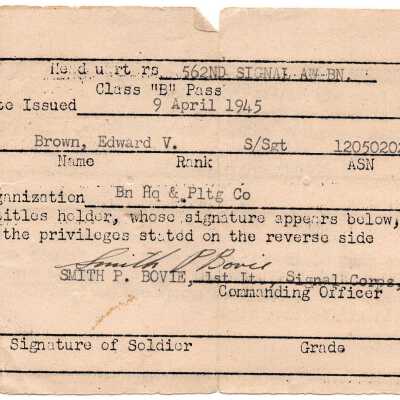 Headquarters 562ND SIGNAL AW BN.
Class "B" Pass
te Issued 9 April 1945
Brown, Edward V. S/Sgt 12050202
Name Rank ASN
ganization Bn Hq & Pltg Co
titles holder, whose signature appears below,
the privileges stated on the reverse side
Smith P Bovie
SMITH P. BOVIE, 1st Lt., Signal Corps,
Commanding Officer
Signature of Soldier Grade